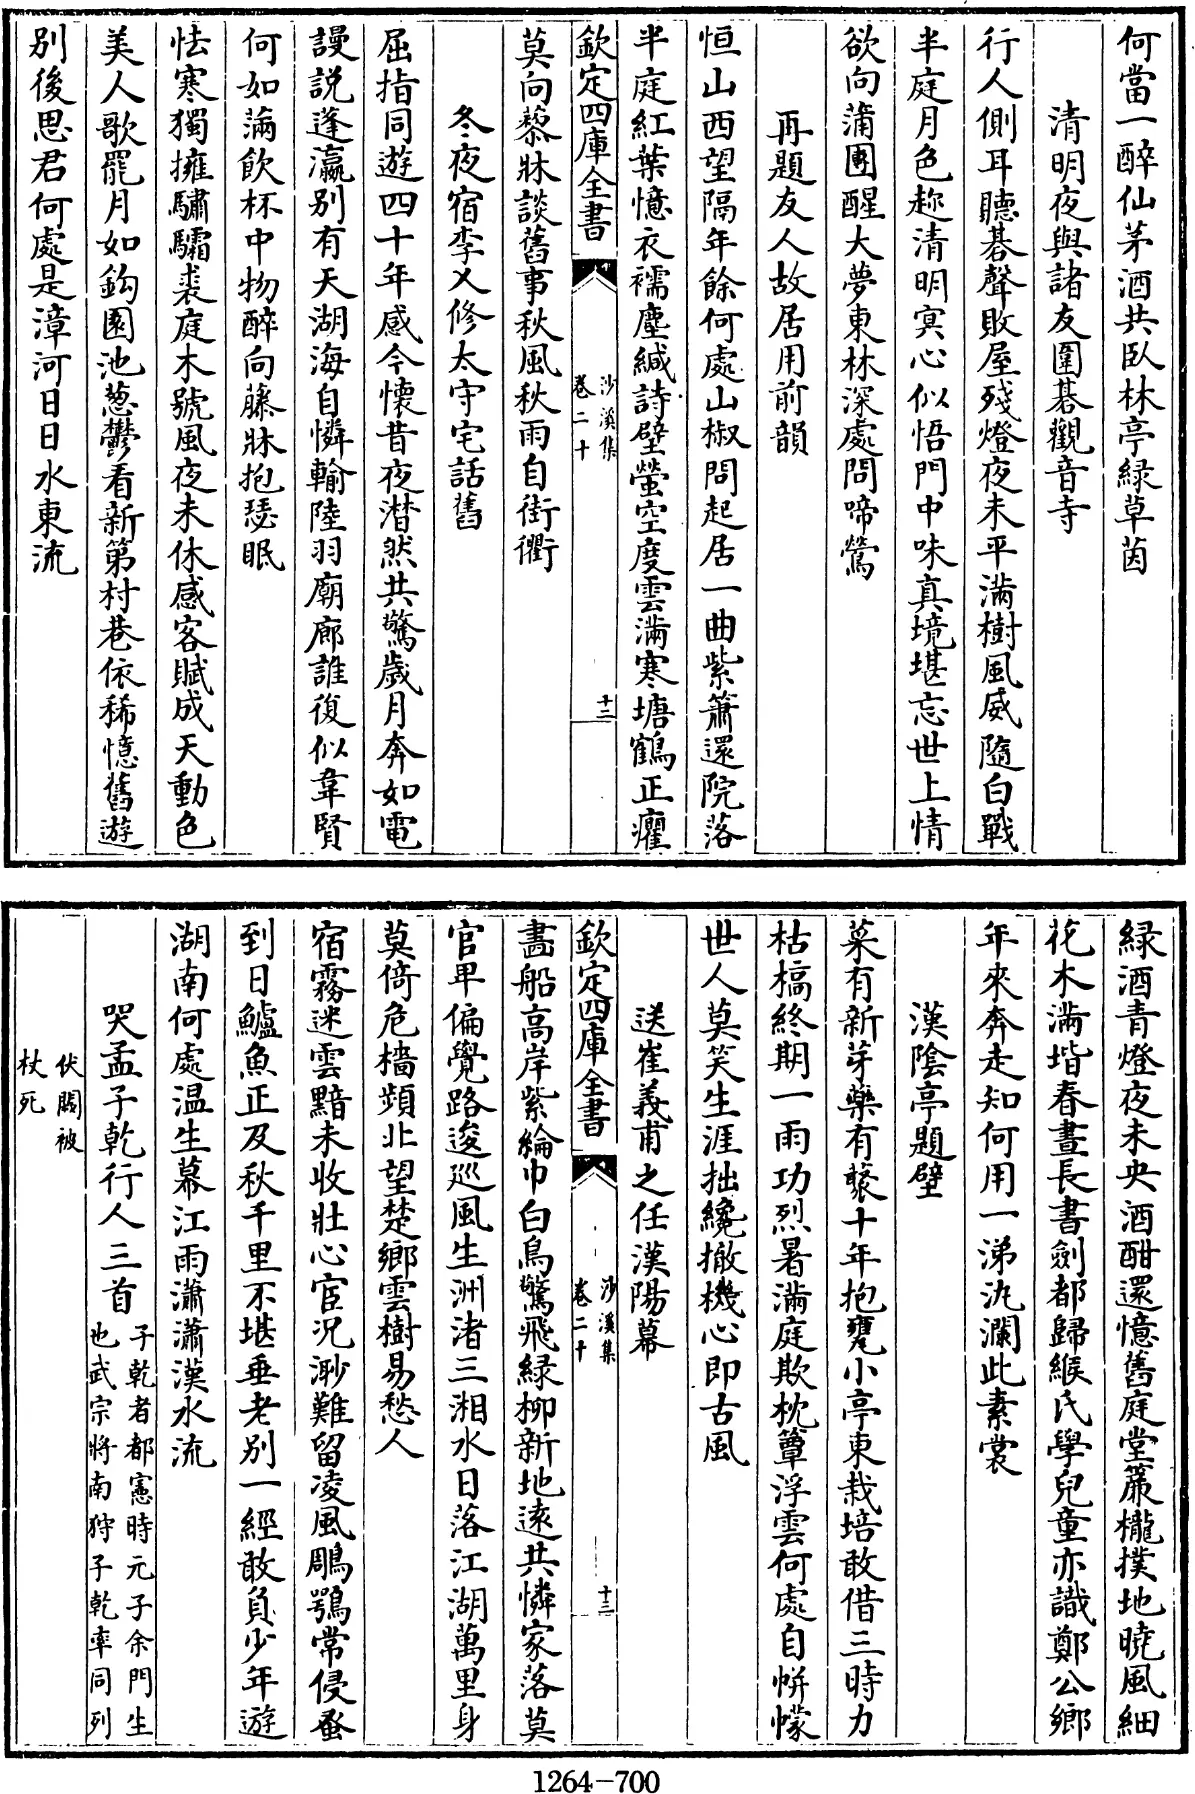 何當一醉仙茅酒共臥林亭緑草茵
清明夜與諸友圍碁觀音寺
行人側耳聽碁聲敗屋殘燈夜未平滿樹風威隨白戰
半庭月色趂清明冥心似悟門中味真境堪忘世上情
欲向蒲團醒大夢東林深處問啼鶯
再題友人故居用前韻
恒山西望隔年餘何處山椒問起居一曲紫簫還院落
半庭紅葉憶衣襦塵緘詩壁螢空度雲滿寒塘鶴正癯
欽定四庫全書
沙溪集
卷二十
十二
莫向藜牀談舊事秋風秋雨自街衢
冬夜宿李乂修太守宅話舊
屈指同遊四十年感今懷昔夜潸然共驚歲月奔如電
謾説蓬瀛别有天湖海自憐輸陸羽廟廊誰復似韋賢
何如滿飲杯中物醉向藤牀抱瑟眠
怯寒獨擁驌驦裘庭木號風夜未休感客賦成天動色
美人歌罷月如鈎園池葱鬱看新第村巷依稀憶舊遊
别後思君何處是漳河日日水東流
緑酒青燈夜未央酒酣還憶舊庭堂簾櫳撲地曉風細
花木滿堦春晝長書劍都歸緱氏學兒童亦識鄭公鄉
年來奔走知何用一涕汍瀾此素裳
漢陰亭題壁
菜有新芽藥有藂十年抱甕小亭東栽培敢借三時力
枯槁終期一雨功烈暑滿庭欺枕簟浮雲何處自帡幪
世人莫笑生涯拙纔撤機心即古風
送崔義甫之任漢陽幕
欽定四庫全書
沙溪集
卷二十
十三
畵船高岸紫綸巾白鳥驚飛緑柳新地遠共憐家落莫
官卑偏覺路逡巡風生洲渚三湘水日落江湖萬里身
莫倚危檣頻北望楚鄉雲樹易愁人
宿霧迷雲黯未收壯心宦况渺難留凌風鵰鶚常侵蚤
到日鱸魚正及秋千里不堪垂老别一經敢負少年遊
湖南何處温生幕江雨瀟瀟漢水流
哭孟子乾行人三首子乾者都憲時元子余門生
也武宗將南狩子乾率同列
伏闕被
杖死
1264-700